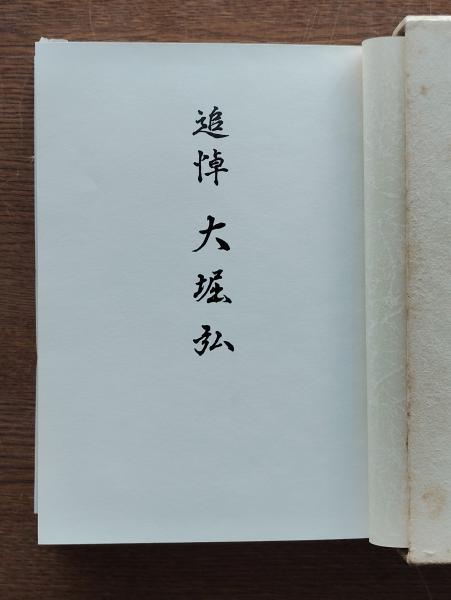 追悼 大堀弘